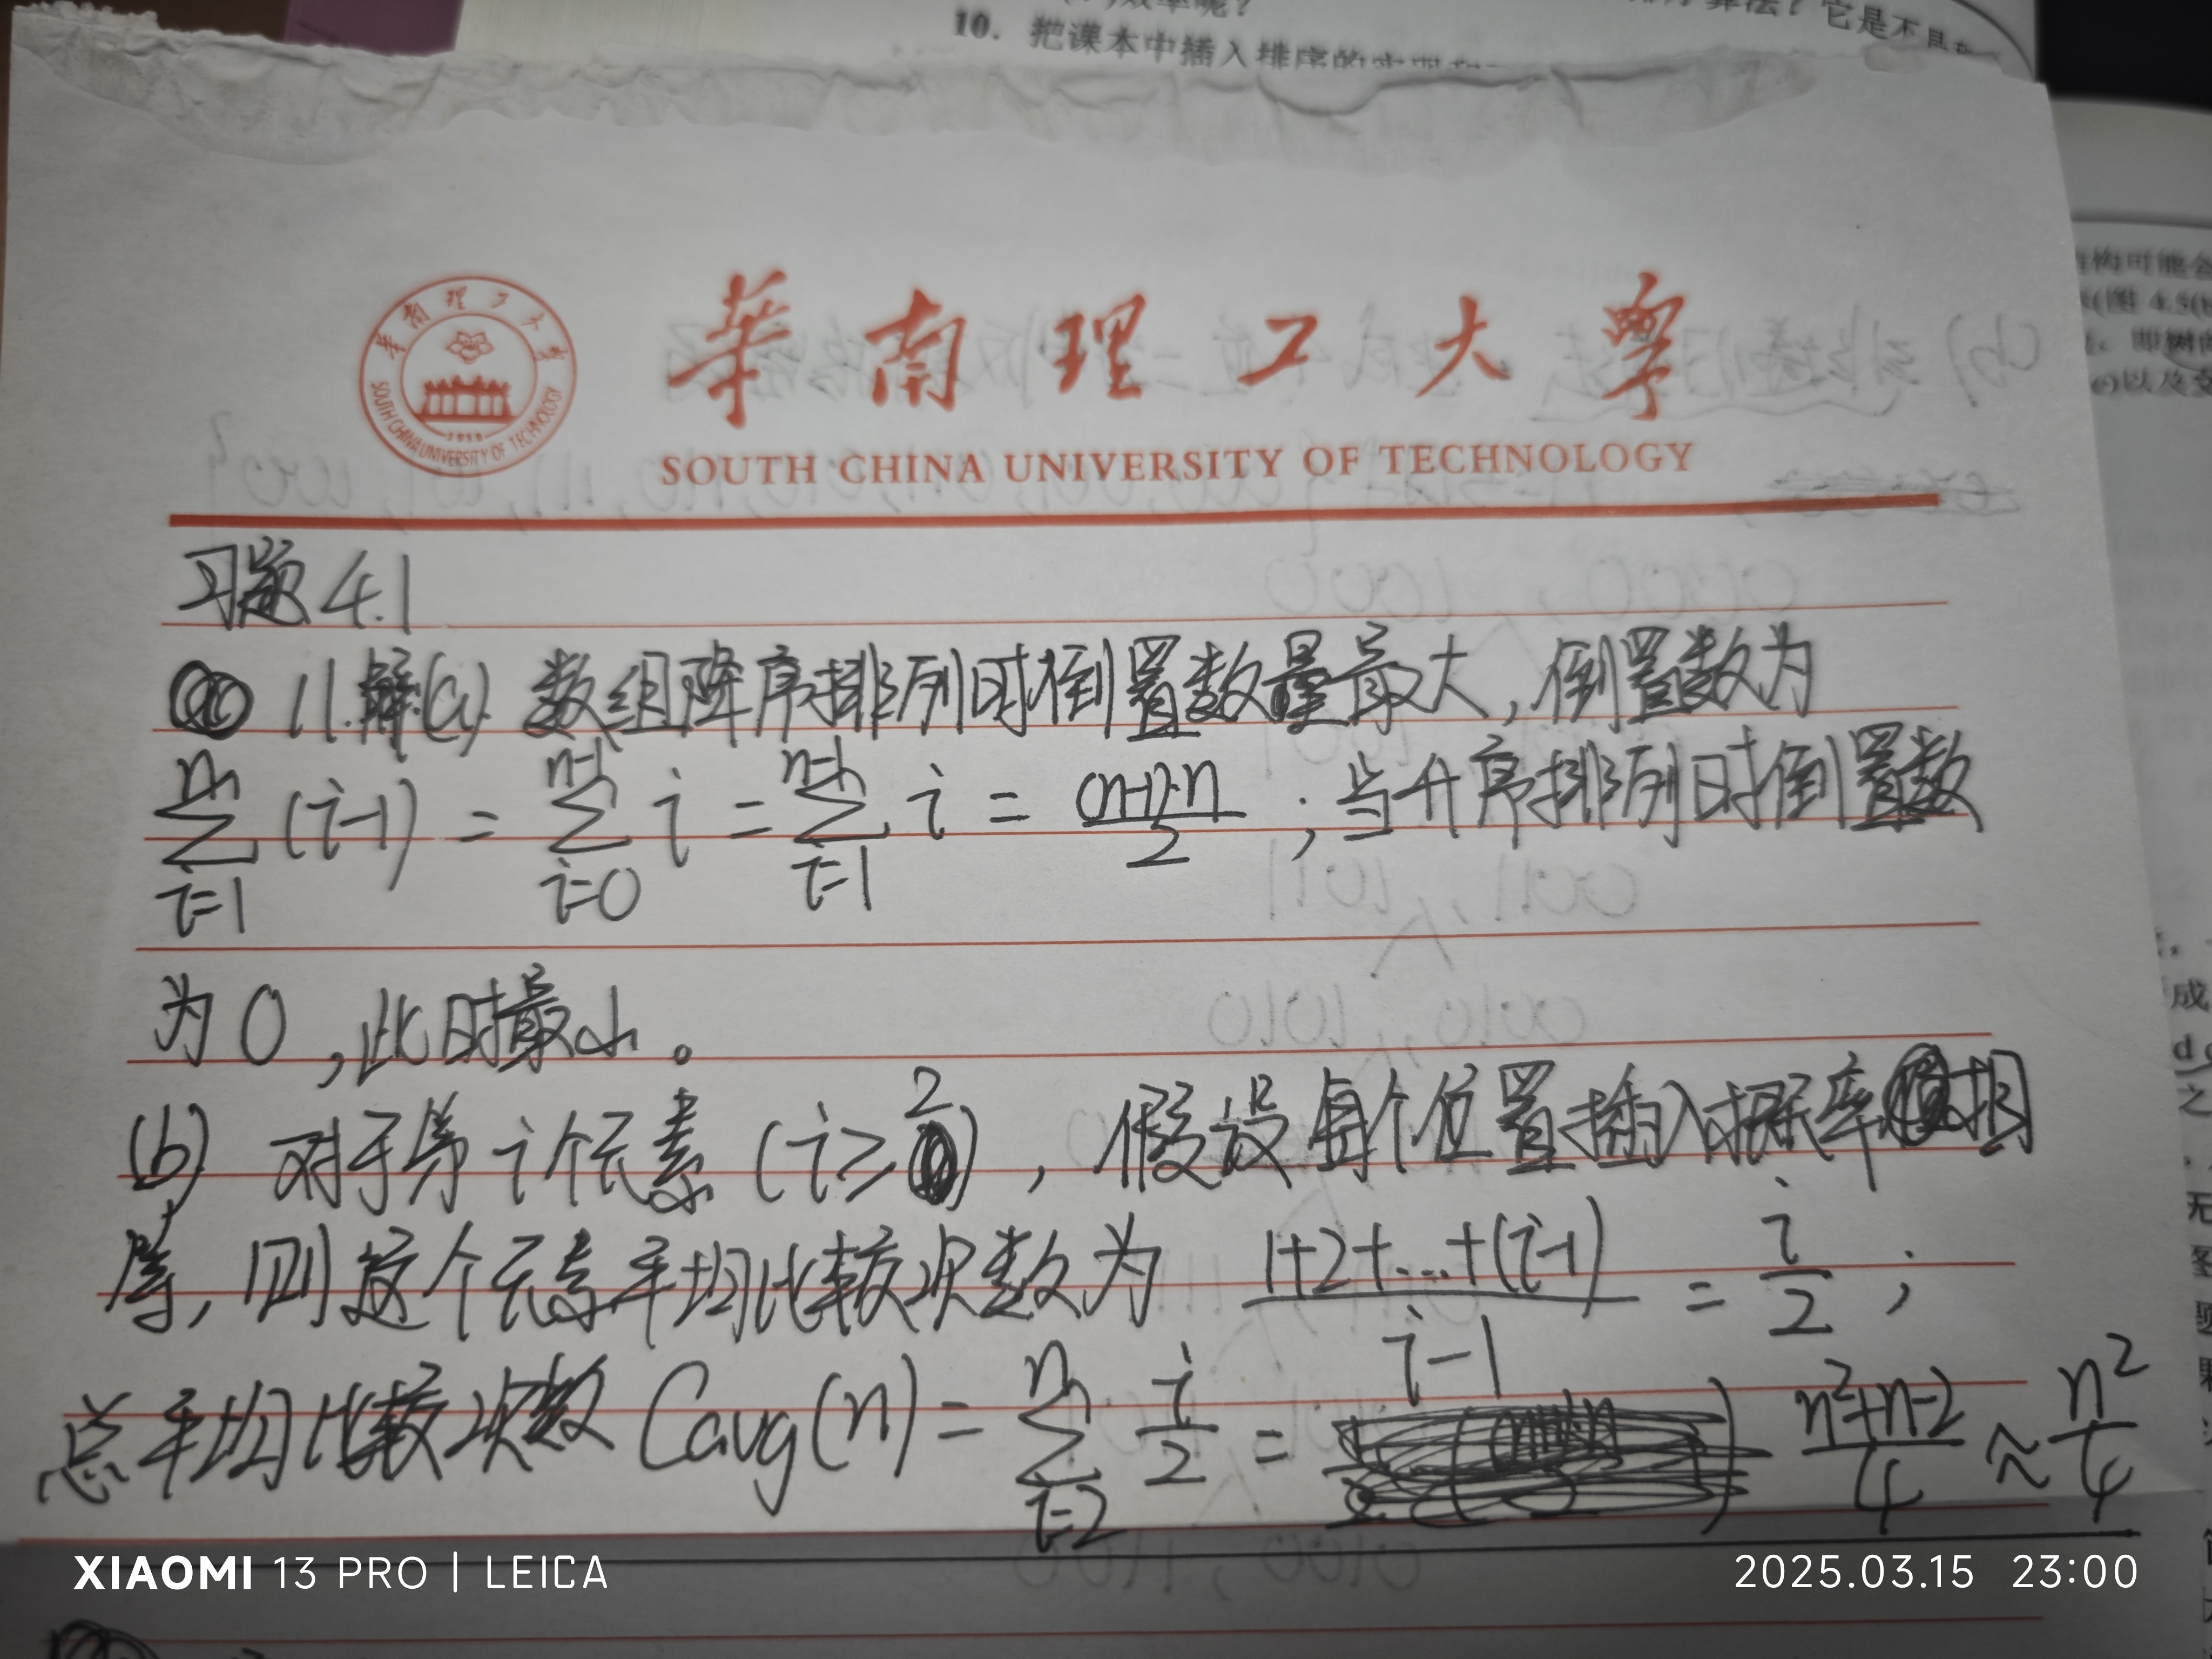 10. 把课本中插入排序的实现和
它是不是
华南理工大学
華南理工大學
SOUTH CHINA UNIVERSITY OF TECHNOLOGY
1952
SOUTH CHINA UNIVERSITY OF TECHNOLOGY
习题4.1
11.解(a) 数组降序排列时倒置数量最大,倒置数为
∑_{i=1}^{n} (i-1) = ∑_{i=0}^{n-1} i = ∑_{i=1}^{n-1} i = (n-1)·n/2 ; 当升序排列时倒置数
为0,此时最小。
(b) 对于第i个元素(i≥2),假设每个位置插入概率相
等,则这个元素平均比较次数为 (1+2+...+(i-1))/(i-1) = i/2 ;
总平均比较次数 Cavg(n) = ∑_{i=2}^{n} i/2 = (n²+n-2)/4 ≈ n²/4
构可能会
(图 4.5(b
即树的
XIAOMI 13 PRO | LEICA
2025.03.15 23:00